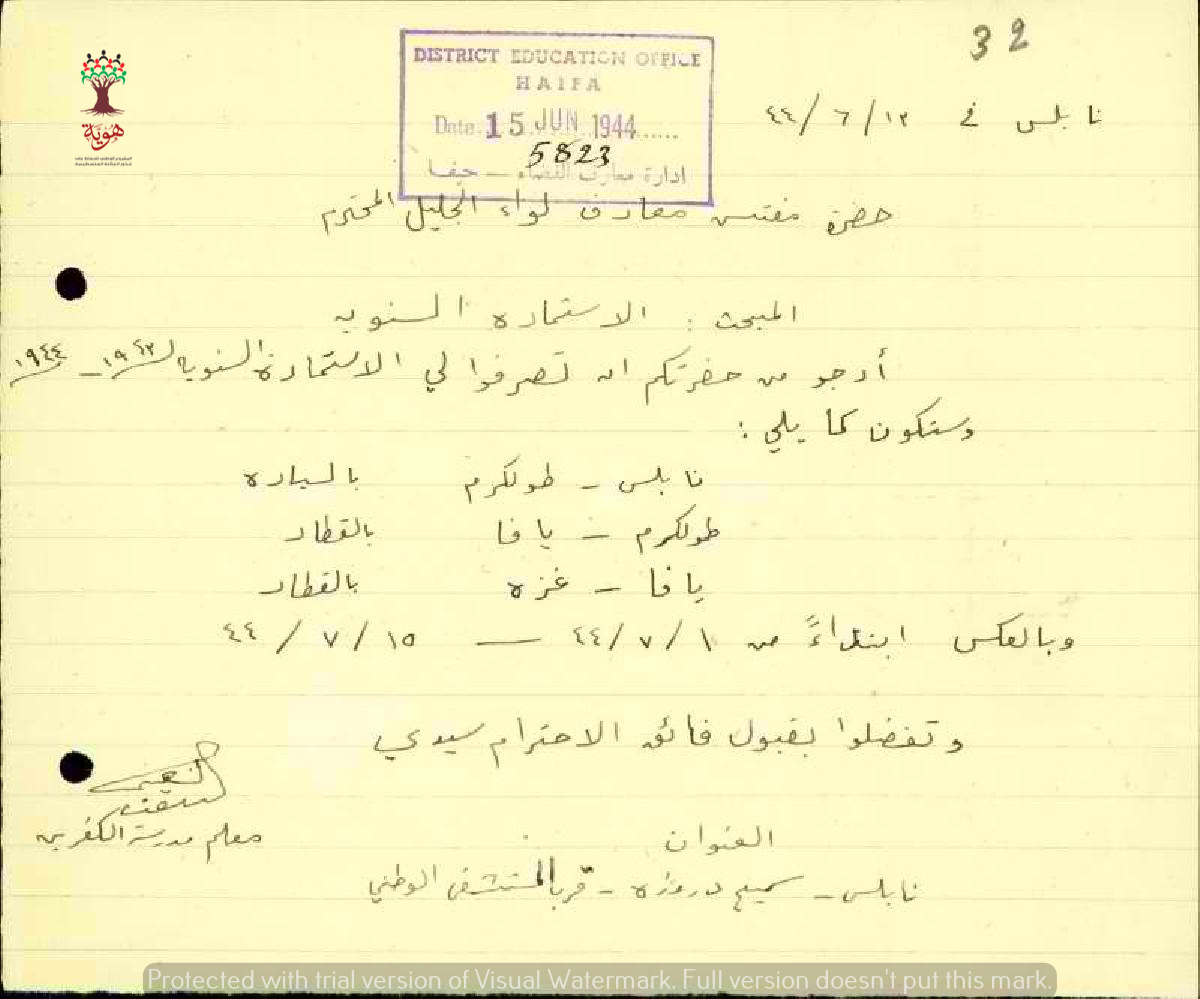 32
DISTRICT EDUCATION OFFICE
HAIFA
Date. 15 JUN 1944......
5823
ادارة معارف القضاء – حيفا
نابلس في ١٢/٦/٤٤
حضرة مفتش معارف لواء الجليل المحترم
المبحث : الاستماره السنويه
أرجو من حضرتكم ان تصرفوا لي الاستمارة السنويه ل ١٩٤٣ – ١٩٤٤
وستكون كما يلي :
نابلس – طولكرم بالسياره
طولكرم – يافا بالقطار
يافا – غزه بالقطار
وبالعكس ابتداءً من ١/٧/٤٤ — ١٥/٧/٤٤
وتفضلوا بقبول فائق الاحترام سيدي
معلم مدرسة الكفرين
العنوان
نابلس – سميح دروزه – قرب المستشفى الوطني
هوية
Protected with trial version of Visual Watermark. Full version doesn't put this mark.